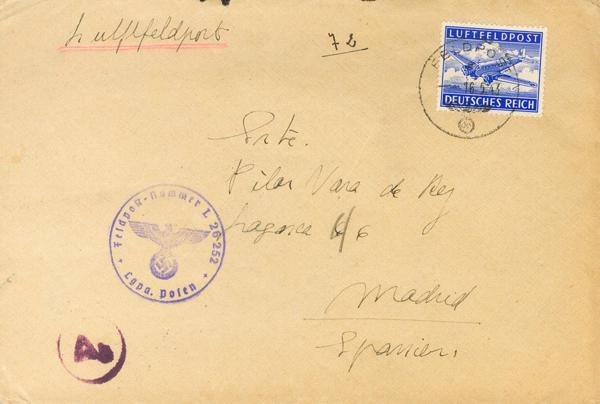 Luftfeldport
72
LUFTFELDPOST
DEUTSCHES REICH
FELDPOST
16.5.43
Srte.
Pilar Vara de Rey
Lagasca 6/6
Madrid
Spanien.
Feldpost-Nummer L 26252
Lgpa. Posen